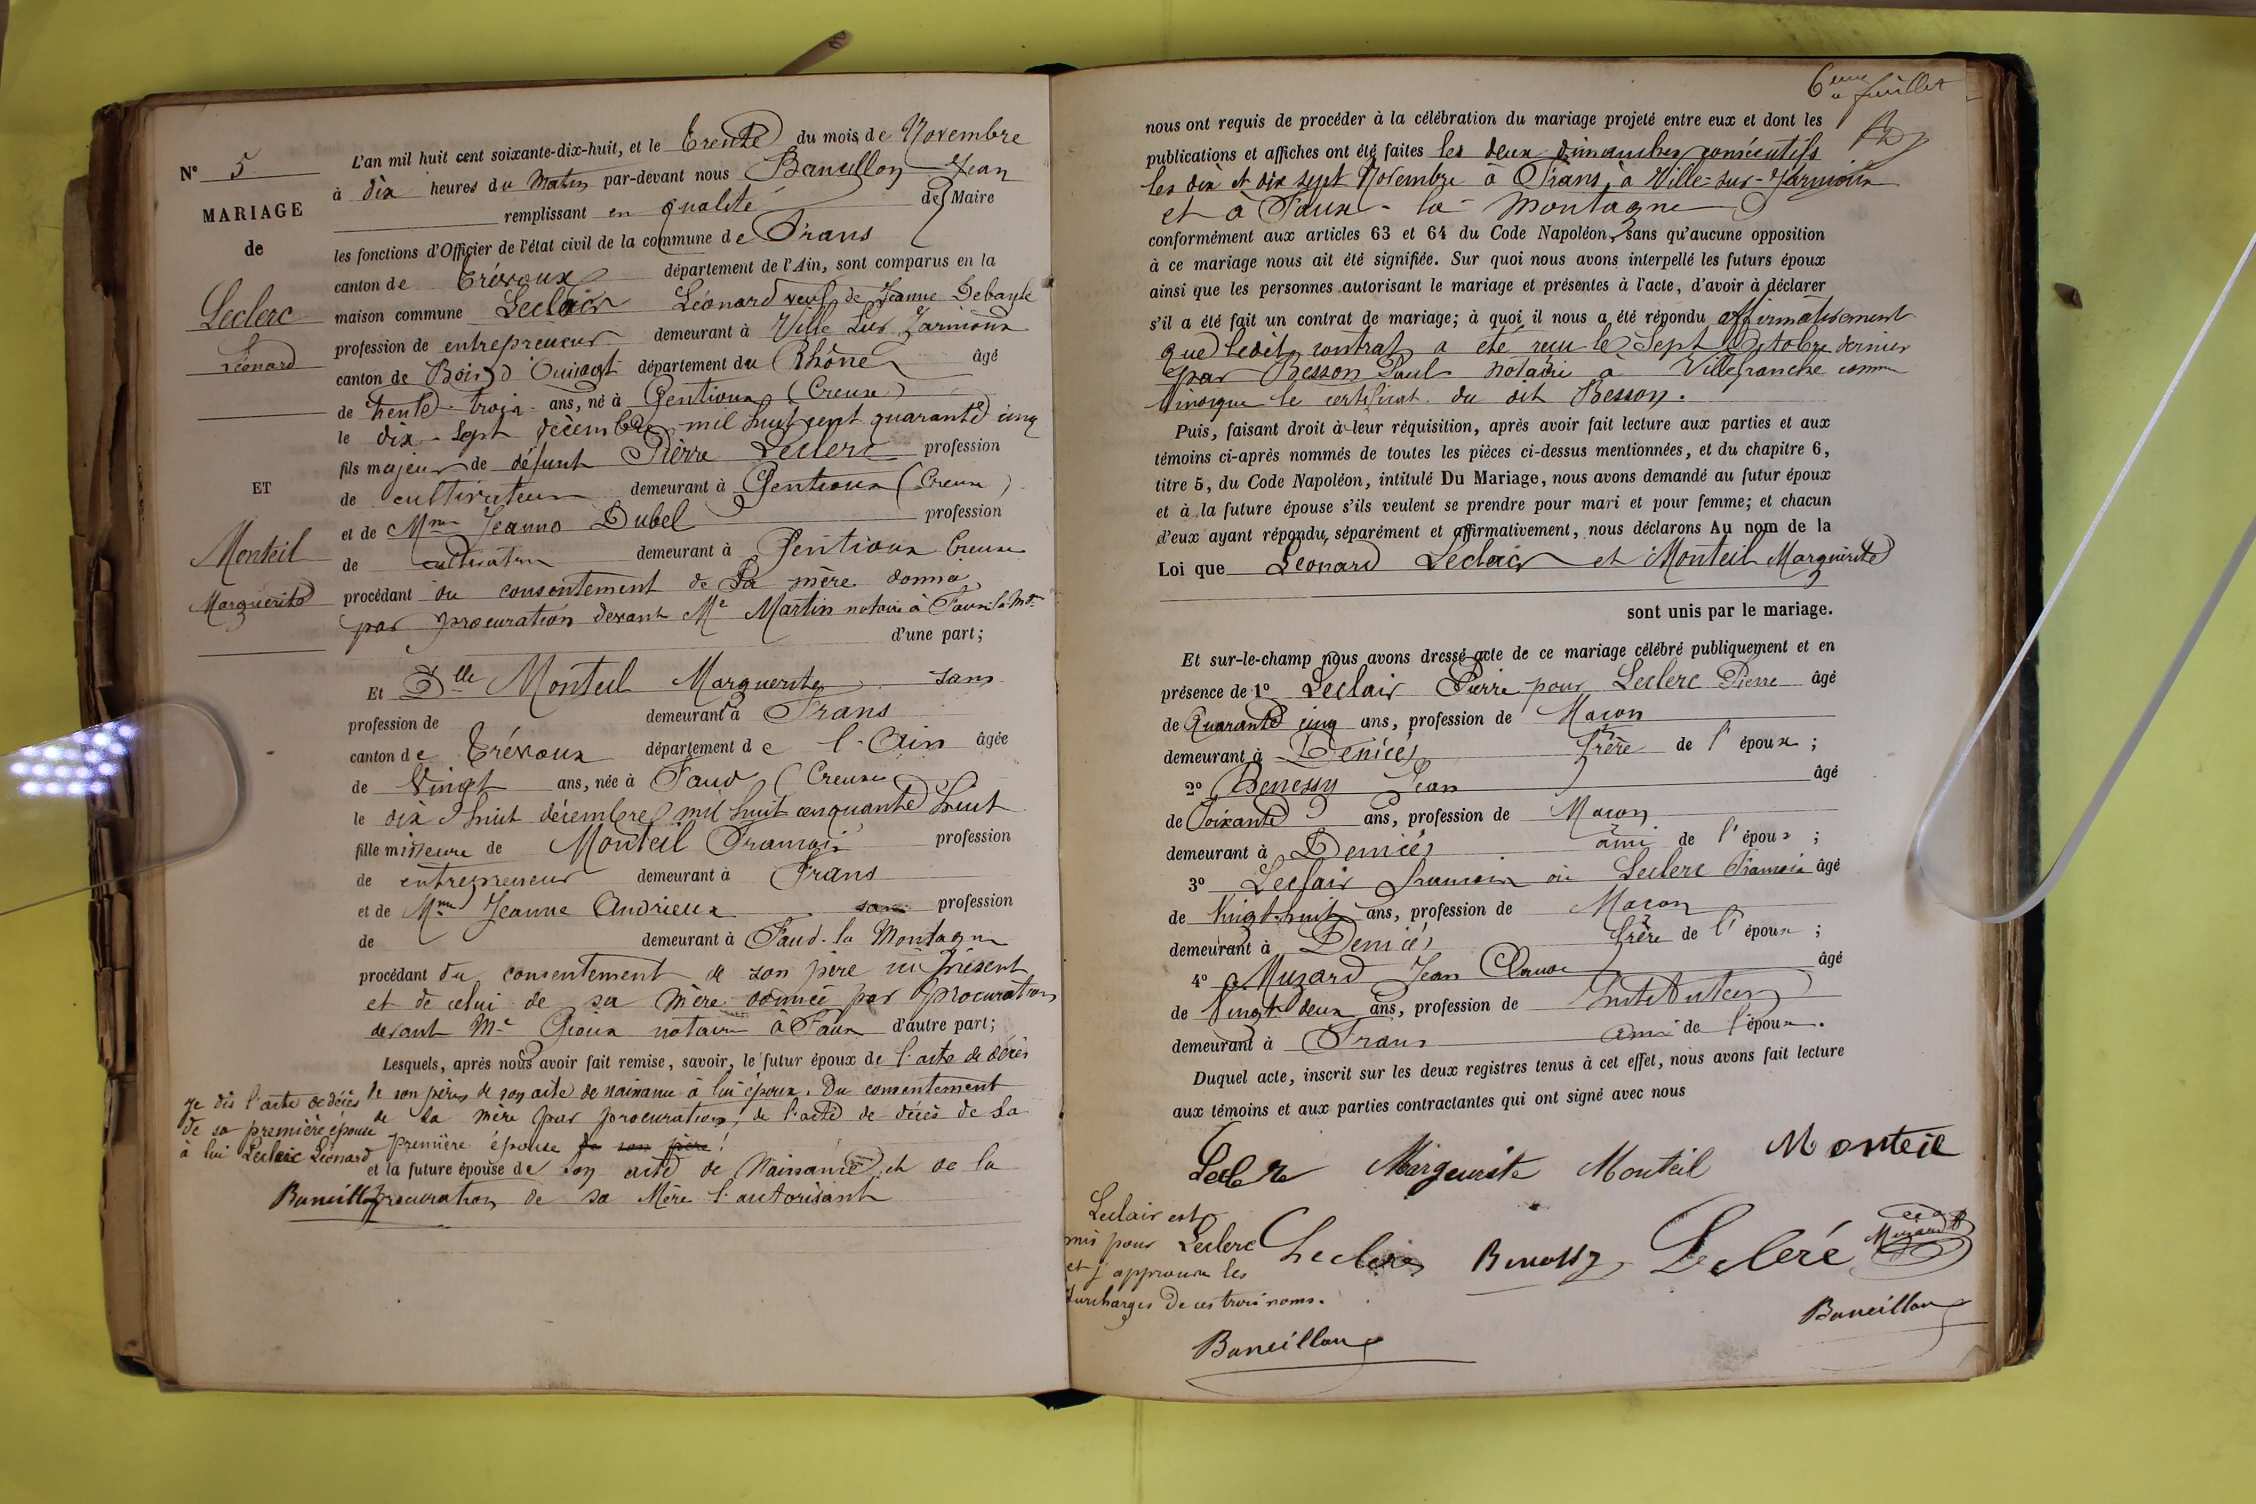 N° 5
MARIAGE
de
Leclerc
Léonard
ET
Monteil
Marguerite
L'an mil huit cent soixante-dix-huit, et le trente du mois de Novembre
à dix heures du matin par-devant nous Baneillon Jean
remplissant en qualité de Maire
les fonctions d'Officier de l'état civil de la commune de Frans
canton de Trévoux département de l'Ain, sont comparus en la
maison commune Leclair Léonard veuf de Jeanne Debayle
profession de entrepreneur demeurant à Ville sur Jarnioux
canton de Bois d'Ouingt département du Rhône âgé
de trente-trois ans, né à Gentioux (Creuse)
le dix-sept décembre mil huit cent quarante cinq
fils majeur de défunt Pierre Leclerc profession
de cultivateur demeurant à Gentioux (Creuse)
et de Mme Jeanne Dubel profession
de cultivatrice demeurant à Gentioux Creuse
procédant du consentement de sa mère donné
par procuration devant Me Martin notaire à Faux-la-Mtne
d'une part;
Et Dlle Monteil Marguerite sans
profession de demeurant à Frans
canton de Trévoux département de l'Ain âgée
de vingt ans, née à Faux (Creuse)
le dix huit décembre mil huit cinquante huit
fille mineure de Monteil François profession
de entrepreneur demeurant à Frans
et de Mme Jeanne Andrieux sans profession
de demeurant à Faux-la Montagne
procédant du consentement de son père ici présent
et de celui de sa mère donnée par procuration
devant Me Gioux notaire à Faux d'autre part;
Lesquels, après nous avoir fait remise, savoir, le futur époux de l'acte de décès
de son père, de son acte de naissance à lui époux. Du consentement
de sa mère par procuration, de l'acte de décès de sa
première épouse de son père !
et la future épouse de son acte de naissance, et de la
procuration de sa mère l'autorisant
je dis l'acte de décès
de sa première épouse
à lui Leclerc Léonard
Baneillon
6ème feuillet
nous ont requis de procéder à la célébration du mariage projeté entre eux et dont les
publications et affiches ont été faites les deux dimanches consécutifs
les dix et dix sept Novembre à Frans, à Ville-sur-Jarnioux
et à Faux-la-Montagne
conformément aux articles 63 et 64 du Code Napoléon, sans qu'aucune opposition
à ce mariage nous ait été signifiée. Sur quoi nous avons interpellé les futurs époux
ainsi que les personnes autorisant le mariage et présentes à l'acte, d'avoir à déclarer
s'il a été fait un contrat de mariage; à quoi il nous a été répondu affirmativement
que ledit contrat a été reçu le sept octobre dernier
par Besson Paul notaire à Villefranche comme
l'indique le certificat du dit Besson.
Puis, faisant droit à leur réquisition, après avoir fait lecture aux parties et aux
témoins ci-après nommés de toutes les pièces ci-dessus mentionnées, et du chapitre 6,
titre 5, du Code Napoléon, intitulé Du Mariage, nous avons demandé au futur époux
et à la future épouse s'ils veulent se prendre pour mari et pour femme; et chacun
d'eux ayant répondu, séparément et affirmativement, nous déclarons Au nom de la
Loi que Léonard Leclair et Monteil Marguerite
sont unis par le mariage.
Et sur-le-champ nous avons dressé acte de ce mariage célébré publiquement et en
présence de 1° Leclair Pierre pour Leclerc Pierre âgé
de Quarante cinq ans, profession de Maçon
demeurant à Denicé frère de l'époux;
2° Benessy Jean âgé
de soixante ans, profession de Maçon
demeurant à Denicé ami de l'époux;
3° Leclair François ou Leclerc François âgé
de vingt-huit ans, profession de Maçon
demeurant à Denicé frère de l'époux;
4° Muzard Jean Claude âgé
de Vingt deux ans, profession de Instituteur
demeurant à Frans ami de l'époux.
Duquel acte, inscrit sur les deux registres tenus à cet effet, nous avons fait lecture
aux témoins et aux parties contractantes qui ont signé avec nous
Margeurite Monteil Monteil
Leclair est
mis pour Leclerc
et j'approuve les
surcharges de ces trois noms.
Lecleré
Muzard
Baneillon
Baneillon